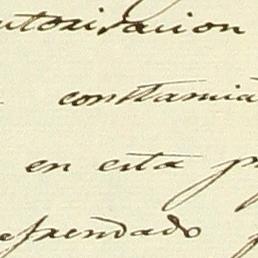 utorisacion
constancia
en esta p
efrendado